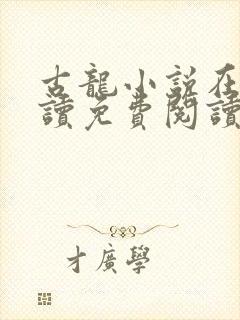 古龍小說在
讀免費閱讀
才廣學